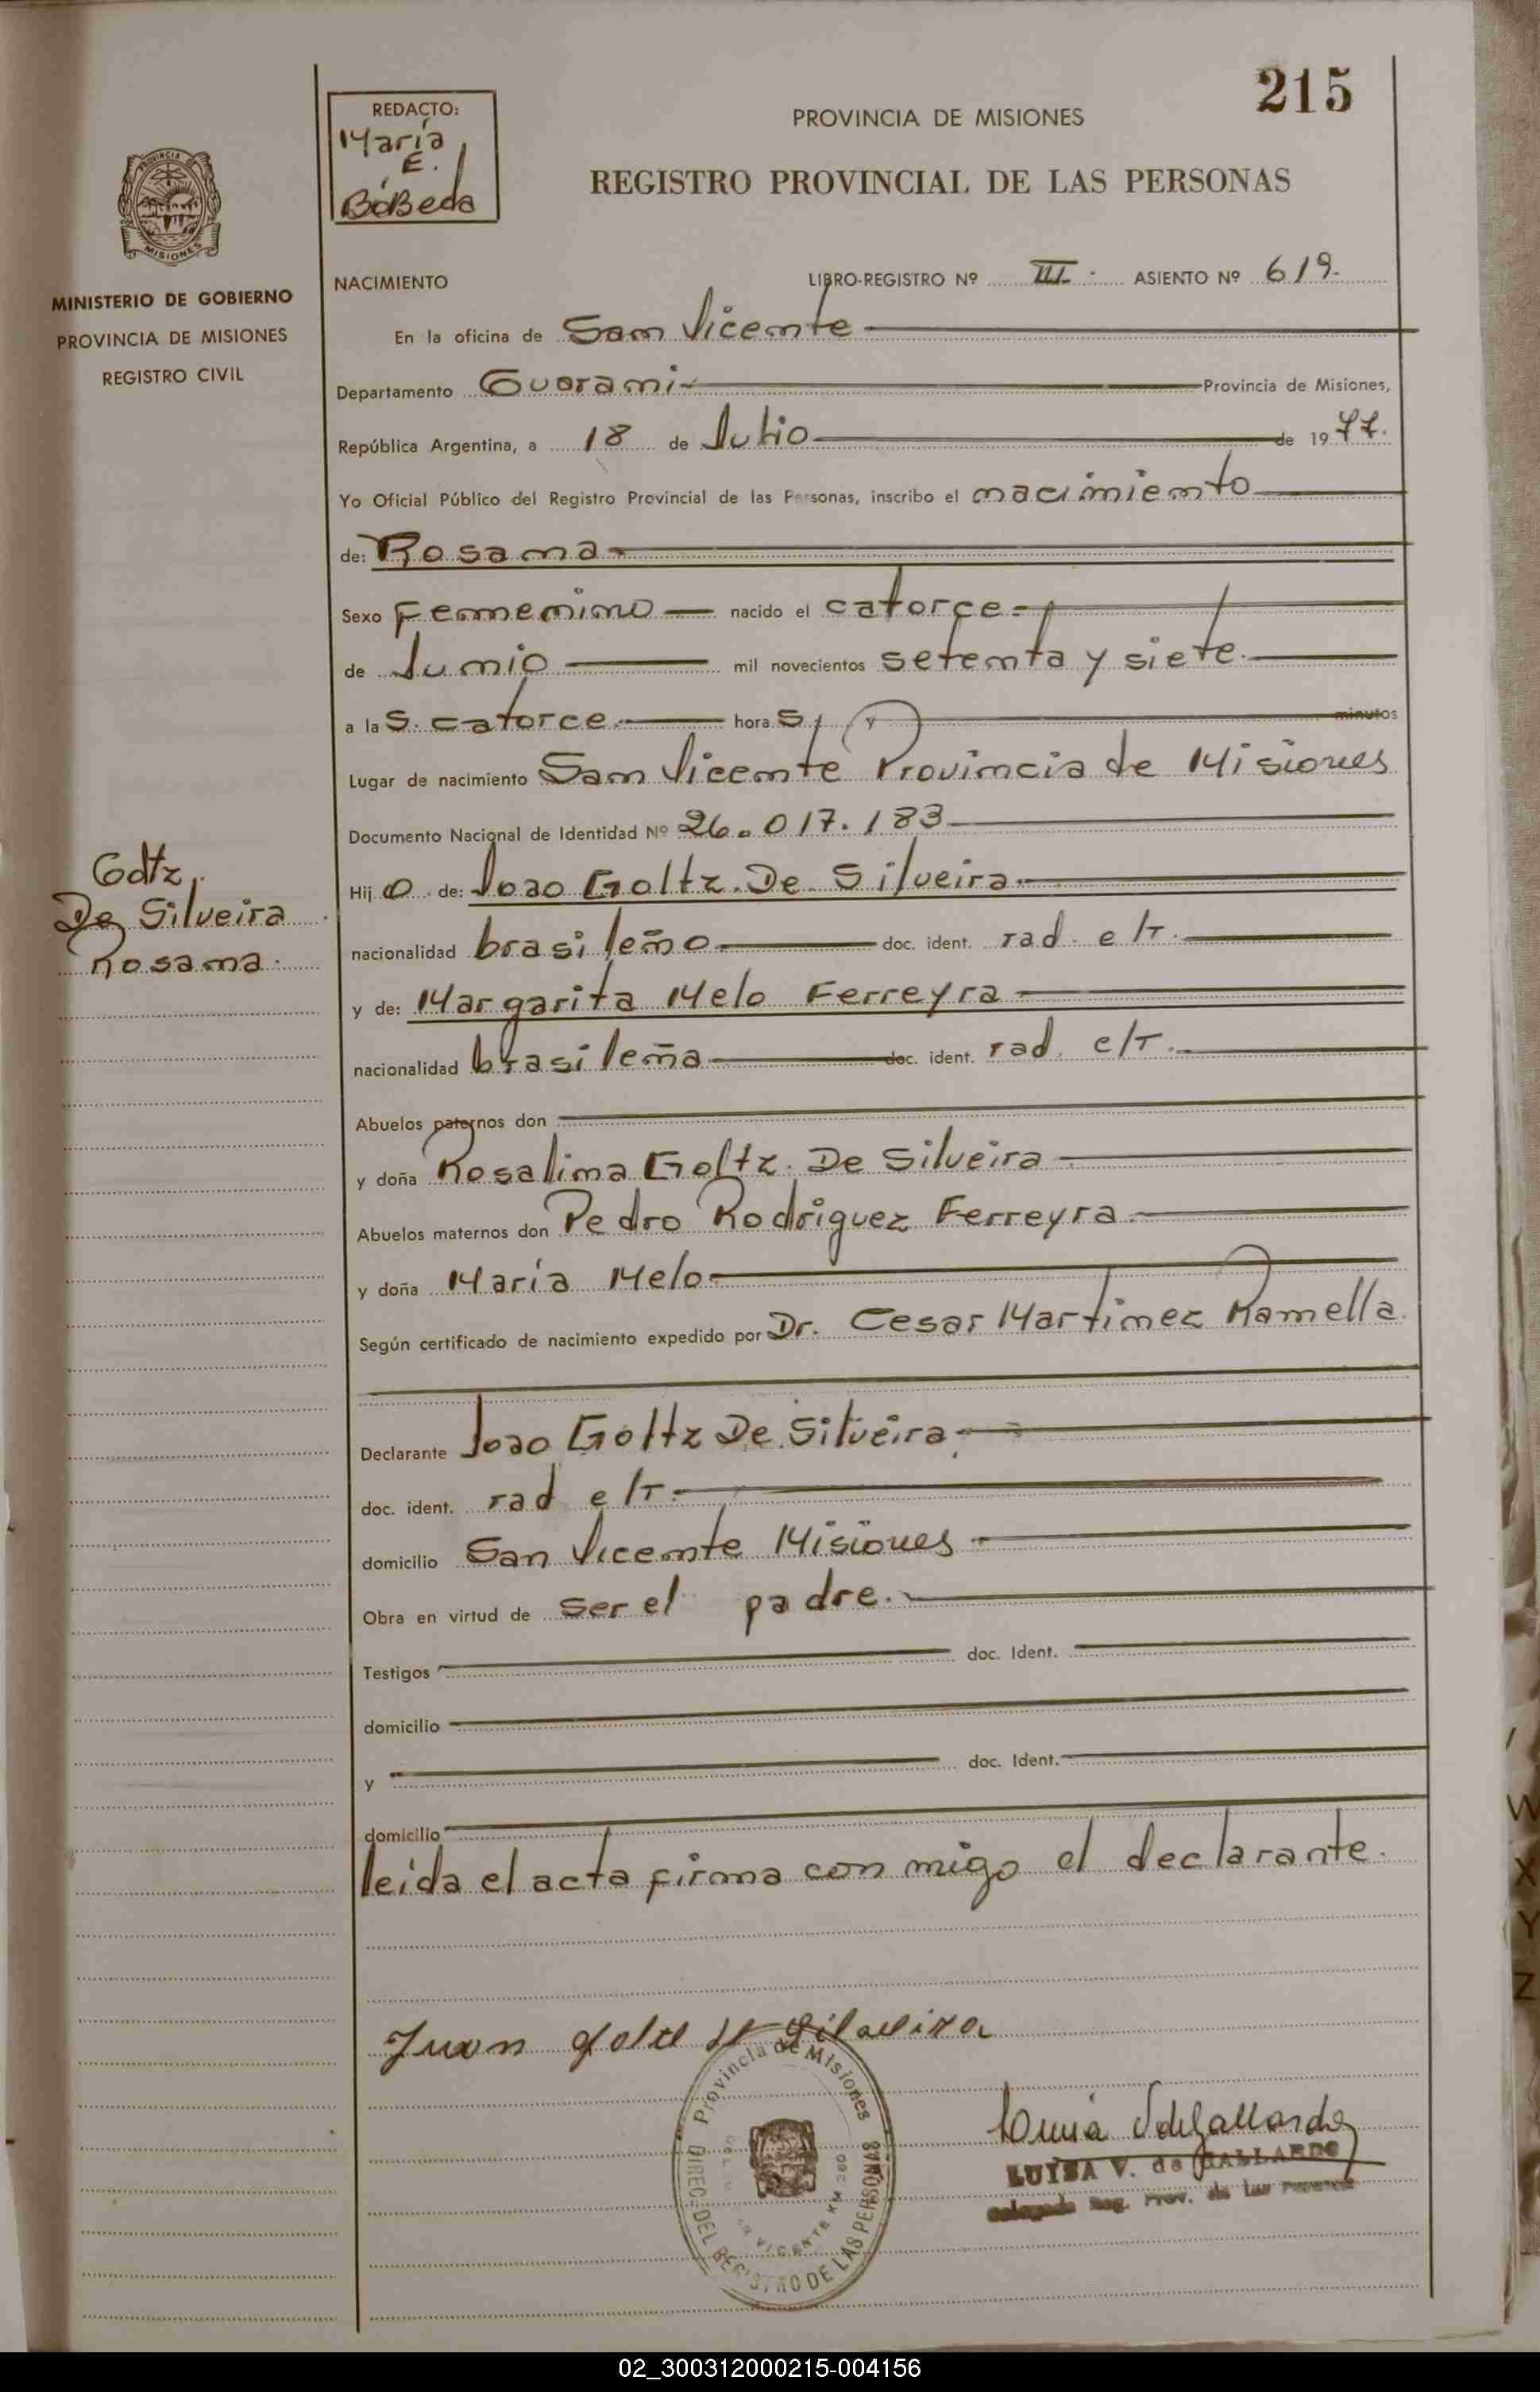 215
REDACTO:
María
E.
BóBeda
PROVINCIA DE MISIONES
REGISTRO PROVINCIAL DE LAS PERSONAS
PROVINCIA DE
MISIONES
MINISTERIO DE GOBIERNO
PROVINCIA DE MISIONES
REGISTRO CIVIL
NACIMIENTO LIBRO-REGISTRO Nº III. ASIENTO Nº 619.
En la oficina de San Vicente
Departamento Guarani Provincia de Misiones,
República Argentina, a 18 de Julio de 1977.
Yo Oficial Público del Registro Provincial de las Personas, inscribo el nacimiento
de: Rosana
Sexo Femenino nacido el catorce
de Junio mil novecientos setenta y siete.
a las catorce. horas, y minutos
Lugar de nacimiento San Vicente Provincia de Misiones
Documento Nacional de Identidad Nº 26.017.183
Hijo de: Joao Goltz. De Silveira.
nacionalidad brasileño doc. ident. rad. e/t.
y de: Margarita Melo Ferreyra
nacionalidad brasileña doc. ident. rad. e/t.
Abuelos paternos don
y doña Rosalina Goltz. De Silveira
Abuelos maternos don Pedro Rodríguez Ferreyra.
y doña María Melo
Según certificado de nacimiento expedido por Dr. Cesar Martinez Ramella.
Declarante Joao Goltz De Silveira.
doc. ident. rad e/t.
domicilio San Vicente Misiones
Obra en virtud de ser el padre.
Testigos doc. Ident.
domicilio
y doc. Ident.
domicilio
leída el acta firma con migo el declarante.
Goltz.
De Silveira
Rosana.
Juan Goltz De Silveira
Provincia de Misiones
DIREC. DEL REGISTRO DE LAS PERSONAS
VICENTE KM 260
LUISA V. de GALLARDO
Delegada Reg. Prov. de las Personas
02_300312000215-004156